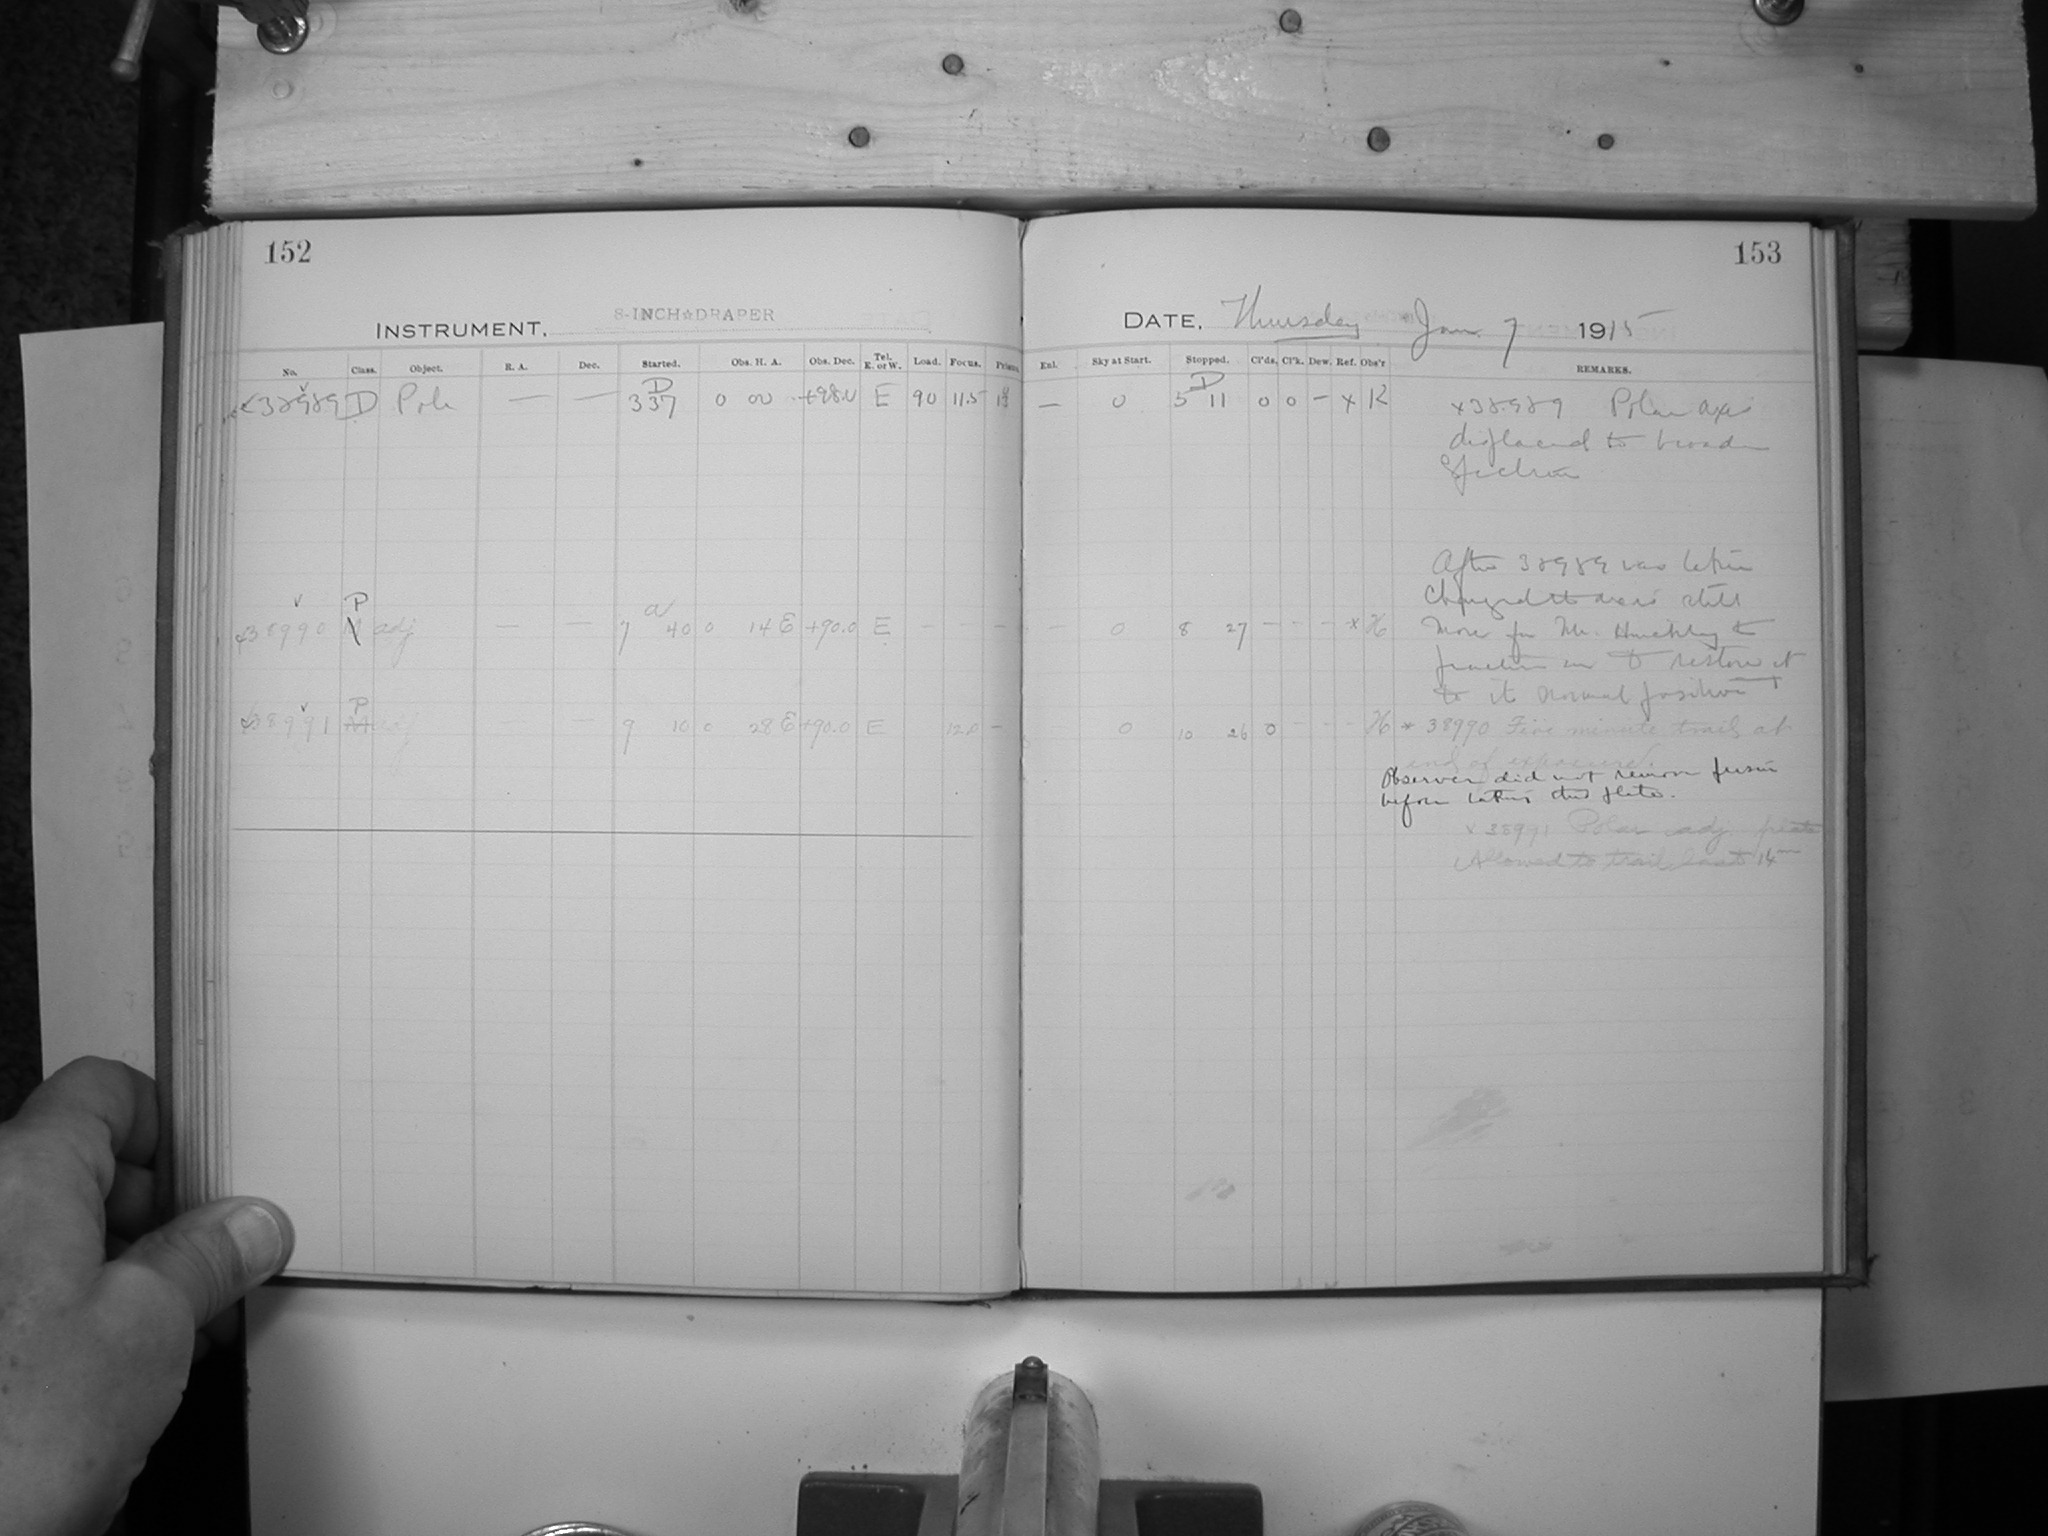 152
153
INSTRUMENT, 8-INCH☆DRAPER
DATE, Thursday Jan. 7 1915
No. Class. Object. R. A. Dec. Started. Obs. H. A. Obs. Dec. Tel. E. or W. Load. Focus. Prisms.
Enl. Sky at Start. Stopped. Cl'ds. Cl'k. Dew. Ref. Obs'r REMARKS.
D D
38989 D Pole — — 3 37 0 00 +88.0 E 90 11.5
— 0 5 11 0 0 – x K x 38989 Polar axis
displaced to broaden
spectrum
After 38989 was taken
changed axis still
more for Mr. Hinckley to
practice on to restore it
to it normal position
P
38990 adj — — 7 40 0 14 E +90.0 E – – –
– 0 8 27 – – – * H
P
38991 adj — — 9 10 0 28 E +90.0 E 12.0 –
0 10 26 0 – – – H * 38990 Five minute trail at
end of exposure.
Observer did not remove prism
before taking this plate.
x 38991 Polar adj. plate
Allowed to trail last 14m